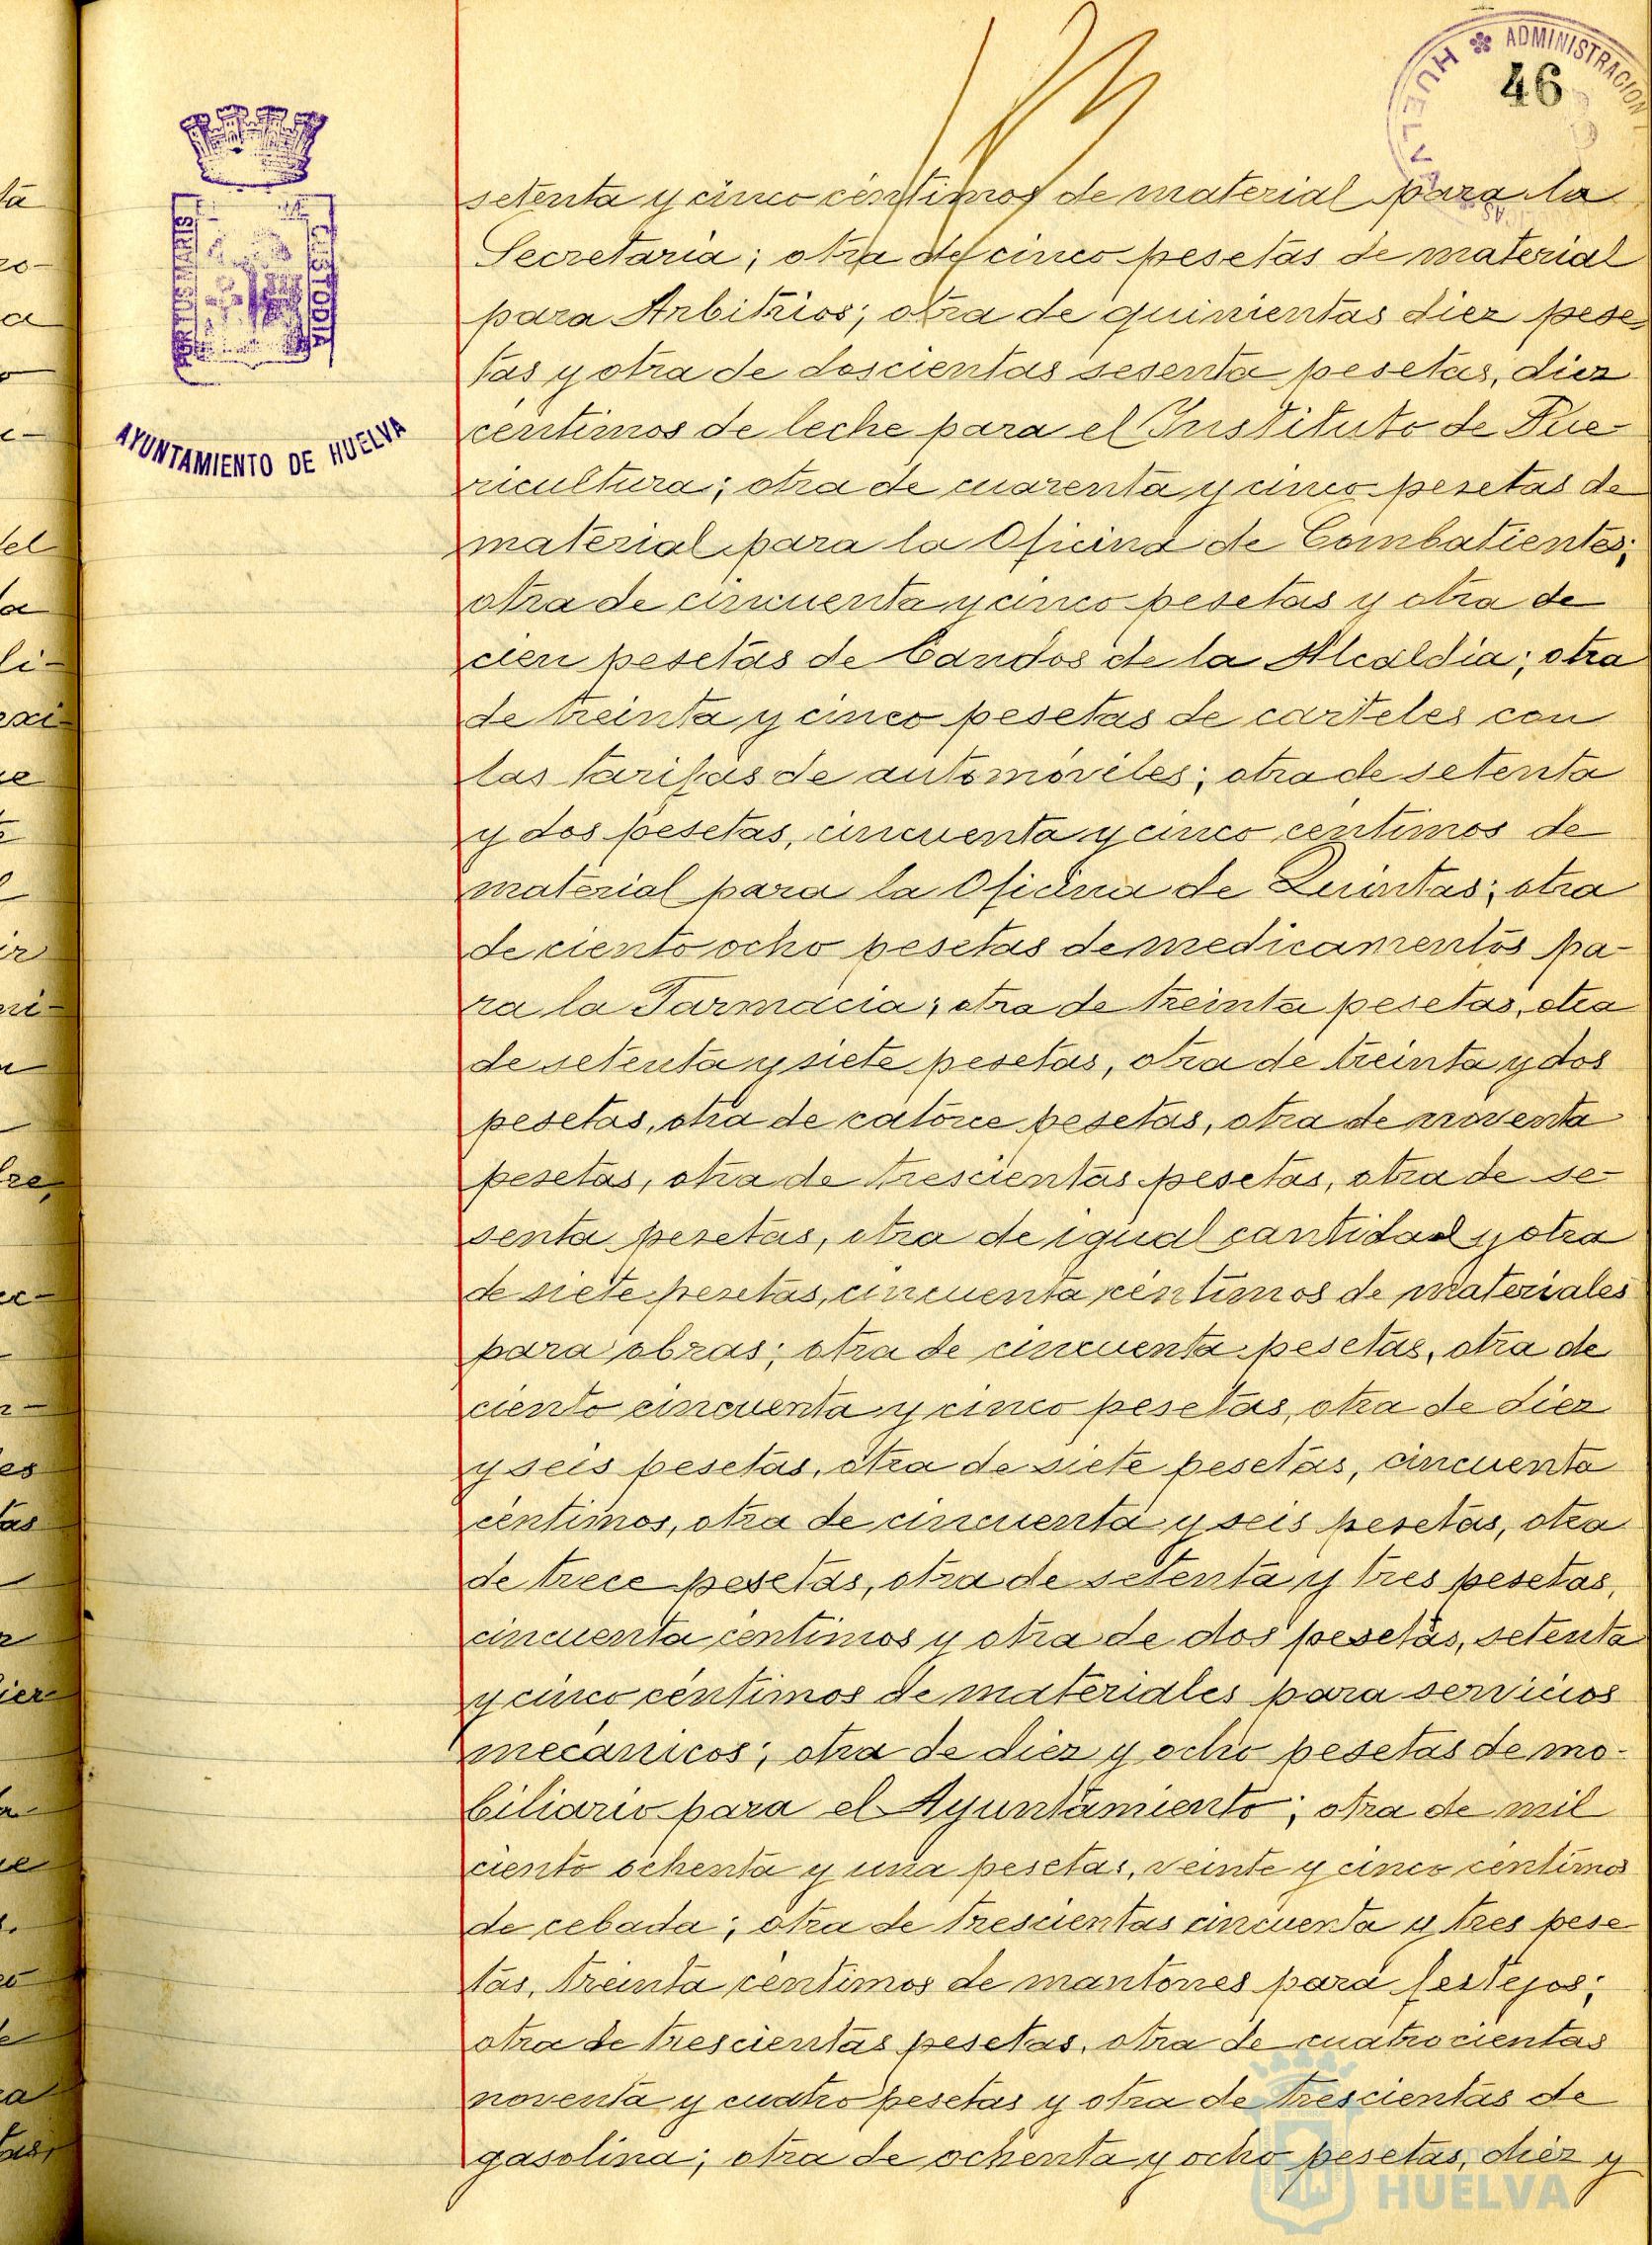 ADMINISTRACION
HUELVA
46
PORTUS MARIS
CUSTODIA
AYUNTAMIENTO DE HUELVA
setenta y cinco céntimos de material para la
Secretaría; otra de cinco pesetas de material
para Arbitrios; otra de quinientas diez pese-
tas y otra de doscientas sesenta pesetas, diez
céntimos de leche para el Instituto de Pue-
ricultura; otra de cuarenta y cinco pesetas de
material para la Oficina de Combatientes;
otra de cincuenta y cinco pesetas y otra de
cien pesetas de bandos de la Alcaldia; otra
de treinta y cinco pesetas de carteles con
las tarifas de automóviles; otra de setenta
y dos pesetas, cincuenta y cinco centimos de
material para la Oficina de Quintas; otra
de ciento ocho pesetas de medicamentos pa-
ra la Farmacia; otra de treinta pesetas, otra
de setenta y siete pesetas, otra de treinta y dos
pesetas, otra de catorce pesetas, otra de noventa
pesetas, otra de trescientas pesetas, otra de se-
senta pesetas, otra de igual cantidad y otra
de siete pesetas, cincuenta céntimos de materiales
para obras; otra de cincuenta pesetas, otra de
ciento cincuenta y cinco pesetas, otra de diez
y seis pesetas, otra de siete pesetas, cincuenta
céntimos, otra de cincuenta y seis pesetas, otra
de trece pesetas, otra de setenta y tres pesetas,
cincuenta céntimos y otra de dos pesetas, setenta
y cinco céntimos de materiales para servicios
mecánicos; otra de diez y ocho pesetas de mo-
biliario para el Ayuntamiento; otra de mil
ciento ochenta y una pesetas, veinte y cinco céntimos
de cebada; otra de trescientas cincuenta y tres pese
tas, treinta céntimos de mantones para festejos;
otra de trescientas pesetas, otra de cuatrocientas
noventa y cuatro pesetas y otra de trescientas de
gasolina; otra de ochenta y ocho pesetas, diez y
HUELVA